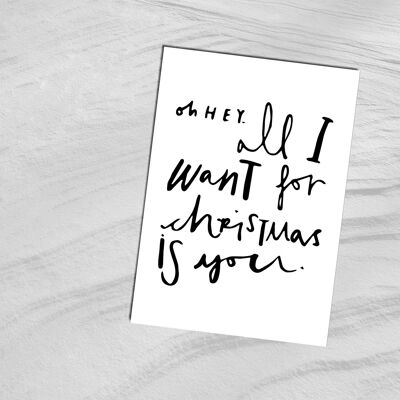 oh HEY.
all I
want for
christmas
is you.